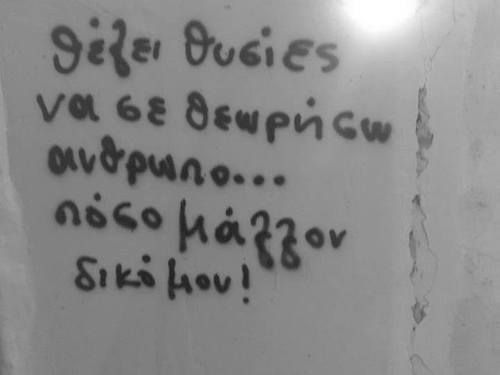 θέλει θυσίες
να σε θεωρήσω
ανθρωπο...
πόσο μάλλον
δικό μου!